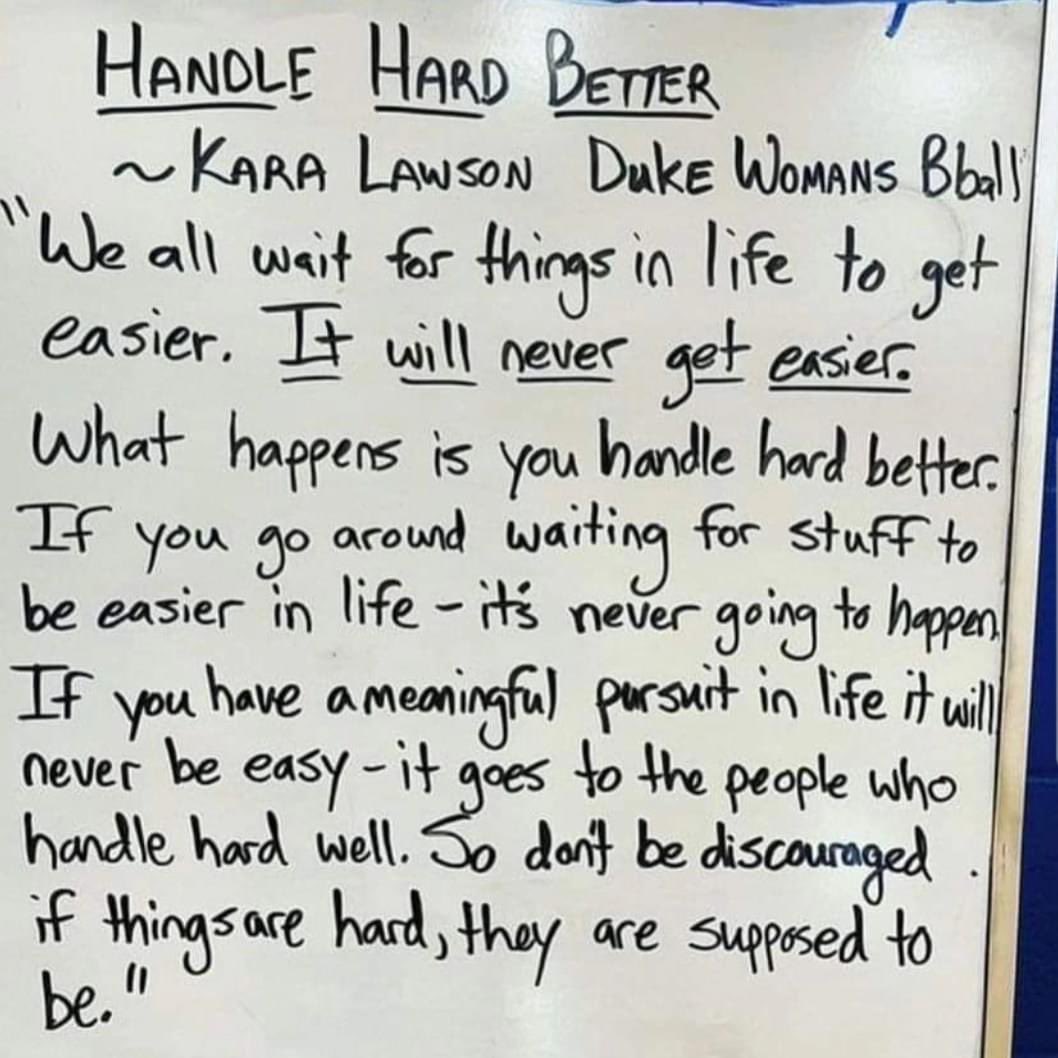 HANDLE HARD BETTER
~KARA LAWSON DUKE WOMANS Bball
"We all wait for things in life to get
easier. It will never get easier.
What happens is you handle hard better.
If you go around waiting for stuff to
be easier in life - it's never going to happen.
If you have a meaningful pursuit in life it will
never be easy - it goes to the people who
handle hard well. So don't be discouraged
if things are hard, they are supposed to
be."